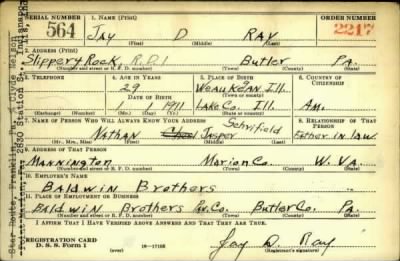 SERIAL NUMBER 1. NAME (Print) ORDER NUMBER
564 JAY D RAY 2217
(First) (Middle) (Last)
2. ADDRESS (Print)
Slippery Rock, R.D.1 Butler PA.
(Number and street or R. F. D. number) (Town) (County) (State)
3. TELEPHONE 4. AGE IN YEARS 5. PLACE OF BIRTH 6. COUNTRY OF CITIZENSHIP
29 Weaukean Ill.
DATE OF BIRTH (Town or county)
1 1 1911 Lake Co. Ill. Am.
(Exchange) (Number) (Mo.) (Day) (Yr.) (State or country)
7. NAME OF PERSON WHO WILL ALWAYS KNOW YOUR ADDRESS 8. RELATIONSHIP OF THAT PERSON
Schrifield
Nathan Jasper Father in law.
(Mr., Mrs., Miss) (First) (Middle) (Last)
9. ADDRESS OF THAT PERSON
Mannington Marion Co. W. Va.
(Number and street or R. F. D. number) (Town) (County) (State)
10. EMPLOYER'S NAME
Baldwin Brothers
11. PLACE OF EMPLOYMENT OR BUSINESS
Baldwin Brothers Butler Co. Pa.
(Number and street or R. F. D. number) (Town) (County) (State)
I AFFIRM THAT I HAVE VERIFIED ABOVE ANSWERS AND THAT THEY ARE TRUE.
REGISTRATION CARD
D. S. S. Form 1 (over) 16—17105 Jay D. Ray
(Registrant's signature)